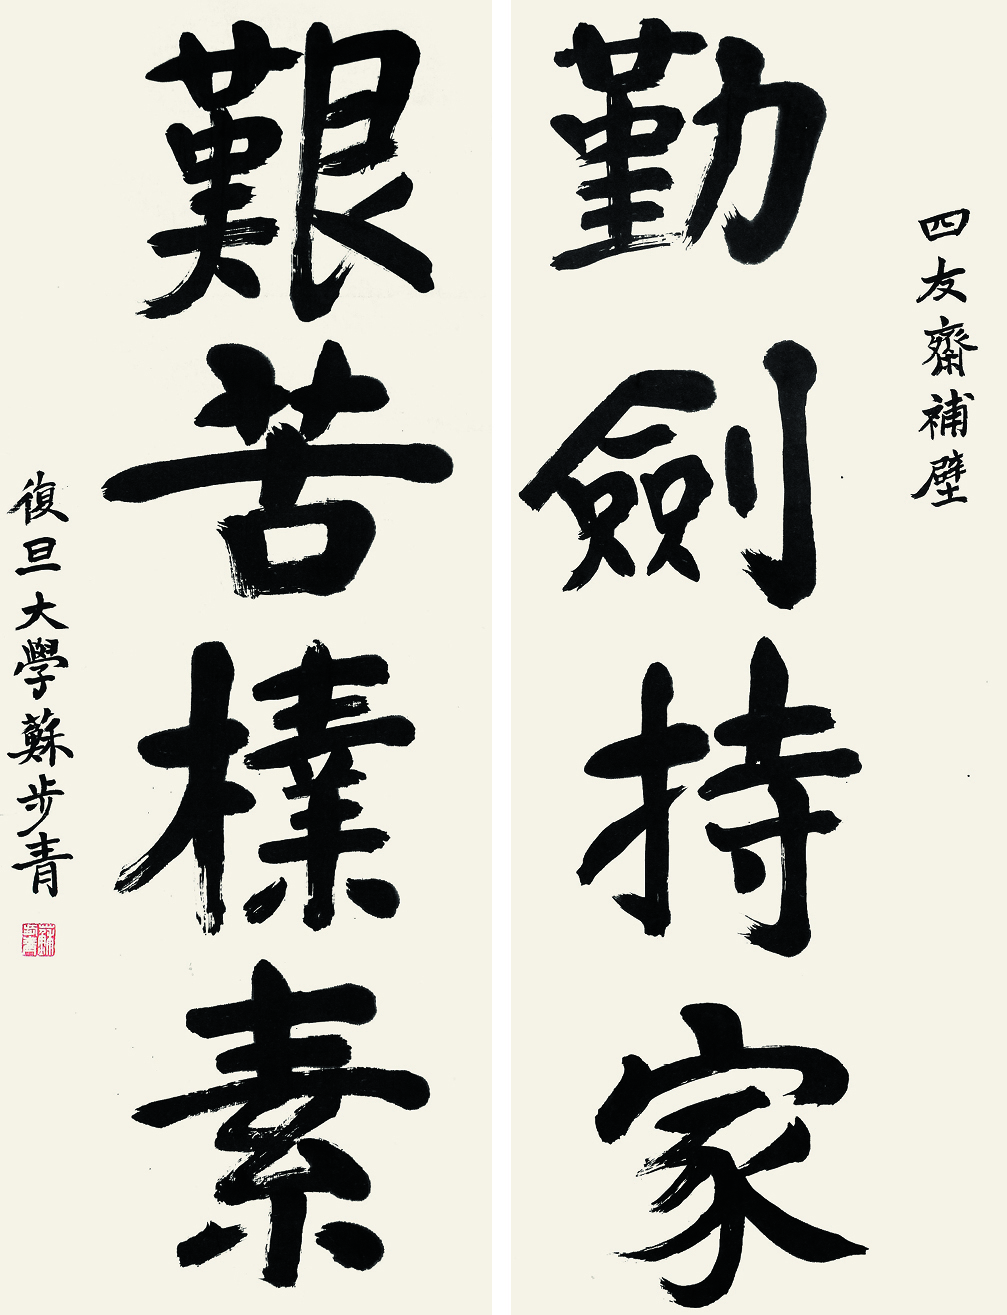 四友齋補壁
勤劍持家
艱苦樸素
復旦大學蘇步青
蘇步青